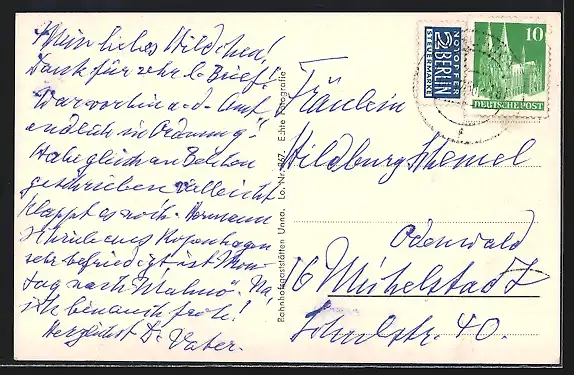 Mein liebes Hildchen!
Dank für sehr l. Brief!
War vorhin a. d. Amt
endlich in Ordnung!
Habe gleich an
geschrieben vielleicht
klappt es noch. Hermann
schrieb aus Kopenhagen
sehr befriedigt ist Mon-
tag nach "Malmö". Na,
ich bin auch froh!
Herzlichst D. Vater.
Bahnhofsgaststätten Unna. Lo. Nr. Echte Fotografie
NOTOPFER
2 BERLIN
STEUERMARKE
10
DEUTSCHE POST
Fräulein
Hildburg
Odenwald
16 Michelstadt
Schulstr. 40.